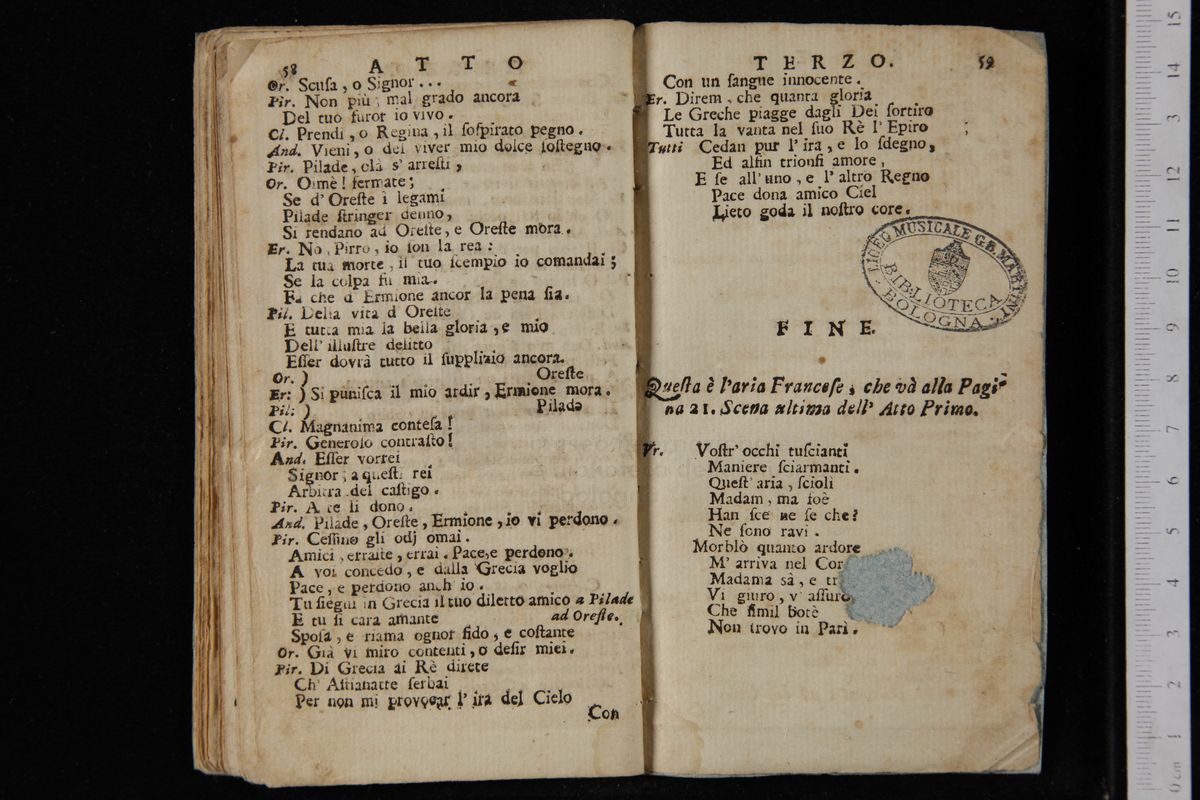 58 ATTO
Or. Scuſa, o Signor...
Pir. Non più; mal grado ancora
Del tuo furor io vivo.
Cl. Prendi, o Regina, il ſoſpirato pegno.
And. Vieni, o del viver mio dolce ſoſtegno.
Pir. Pilade, olà s'arreſti,
Or. Oimè! fermate;
Se d'Oreſte i legami
Pilade ſtringer denno,
Si rendano ad Oreſte, e Oreſte mora.
Er. No, Pirro, io ſon la rea:
La tua morte, il tuo ſcempio io comandai;
Se la colpa fu mia.
Fa che d'Ermione ancor la pena ſia.
Pil. Della vita d'Oreſte
E tutta mia la bella gloria, e mio
Dell'illuſtre delitto
Eſſer dovrà tutto il ſupplizio ancora.
Or. ) Oreſte
Er: ) Si puniſca il mio ardir, Ermione mora.
Pil: ) Pilade
Cl. Magnanima conteſa!
Pir. Generoſo contraſto!
And. Eſſer vorrei
Signor, a queſti rei
Arbitra del caſtigo.
Pir. A te li dono.
And. Pilade, Oreſte, Ermione, io vi perdono.
Pir. Ceſſino gli odj omai.
Amici, erraſte, errai. Pace, e perdono.
A voi concedo, e dalla Grecia voglio
Pace, e perdono anch'io.
Tu ſiegui in Grecia il tuo diletto amico a Pilade
E tu ſi cara amante ad Oreſte.
Spoſa, e riama ognor fido, e coſtante
Or. Già vi miro contenti, o deſir miei.
Pir. Di Grecia ai Rè direte
Ch'Aſtianatte ſerbai
Per non mi provocar l'ira del Cielo
Con
TERZO. 59
Con un ſangue innocente.
Er. Direm, che quanta gloria
Le Greche piagge dagli Dei ſortiro
Tutta la vanta nel ſuo Rè l'Epiro;
Tutti Cedan pur l'ira, e lo ſdegno,
Ed alfin trionfi amore,
E ſe all'uno, e l'altro Regno
Pace dona amico Ciel
Lieto goda il noſtro core.
LICEO MUSICALE G.B. MARTINI
BIBLIOTECA
BOLOGNA
FINE.
Queſta è l'aria Franceſe, che và alla Pagi-
na 21. Scena ultima dell'Atto Primo.
Vr. Voſtr'occhi tuſcianti
Maniere ſciarmanti.
Queſt'aria, ſcioli
Madam, ma foè
Han ſce ne ſe che?
Ne ſono ravi.
Morblò quanto ardore
M'arriva nel Cor
Madama sà, e tr
Vi giuro, v'aſſuro
Che ſimil botè
Non trovo in Parì.
0 cm 1 2 3 4 5 6 7 8 9 10 11 12 13 14 15